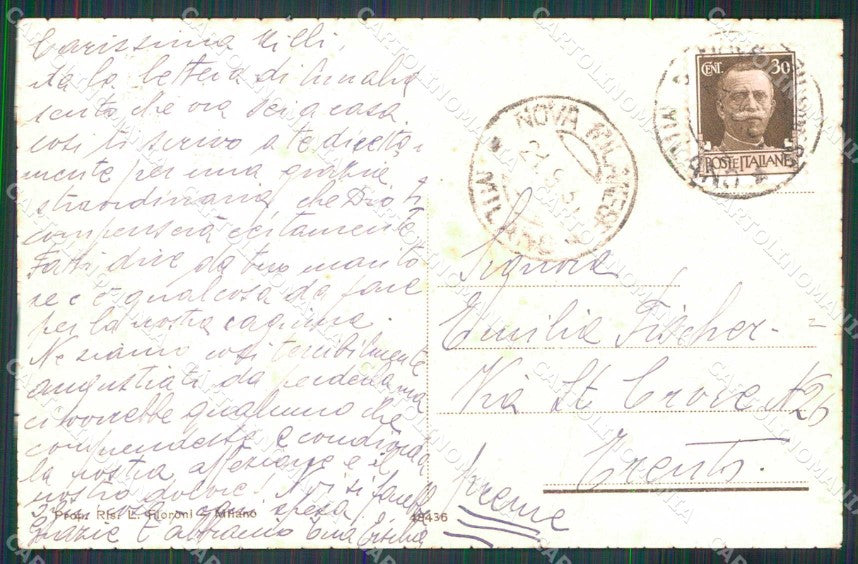 Carissima Milli,
da la lettera di Amalia
sento che ora sei a casa
così ti scrivo a te diretta-
mente per una grazia
straordinaria che Dio ti
compenserà certamente
Fatti dire da tuo marito
se c'è qualcosa da fare
per la nostra cagnina.
Ne siamo così terribilmente
angustiati da perderla ma
ci vorrebbe qualcuno che
comprendesse e condividesse
la nostra afezione e il
nostro dolore! Noi si farebbe
spesa!
Grazie e abbiamo una
Prop. Ris. E. Fioroni - Milano
49436
CENT. 30
POSTE ITALIANE
NOVA MILANESE
* MILANO
Signora
Emilia Fischer-
Via St Croce N 26
Trento.
preme
CARTOLINOMANIA